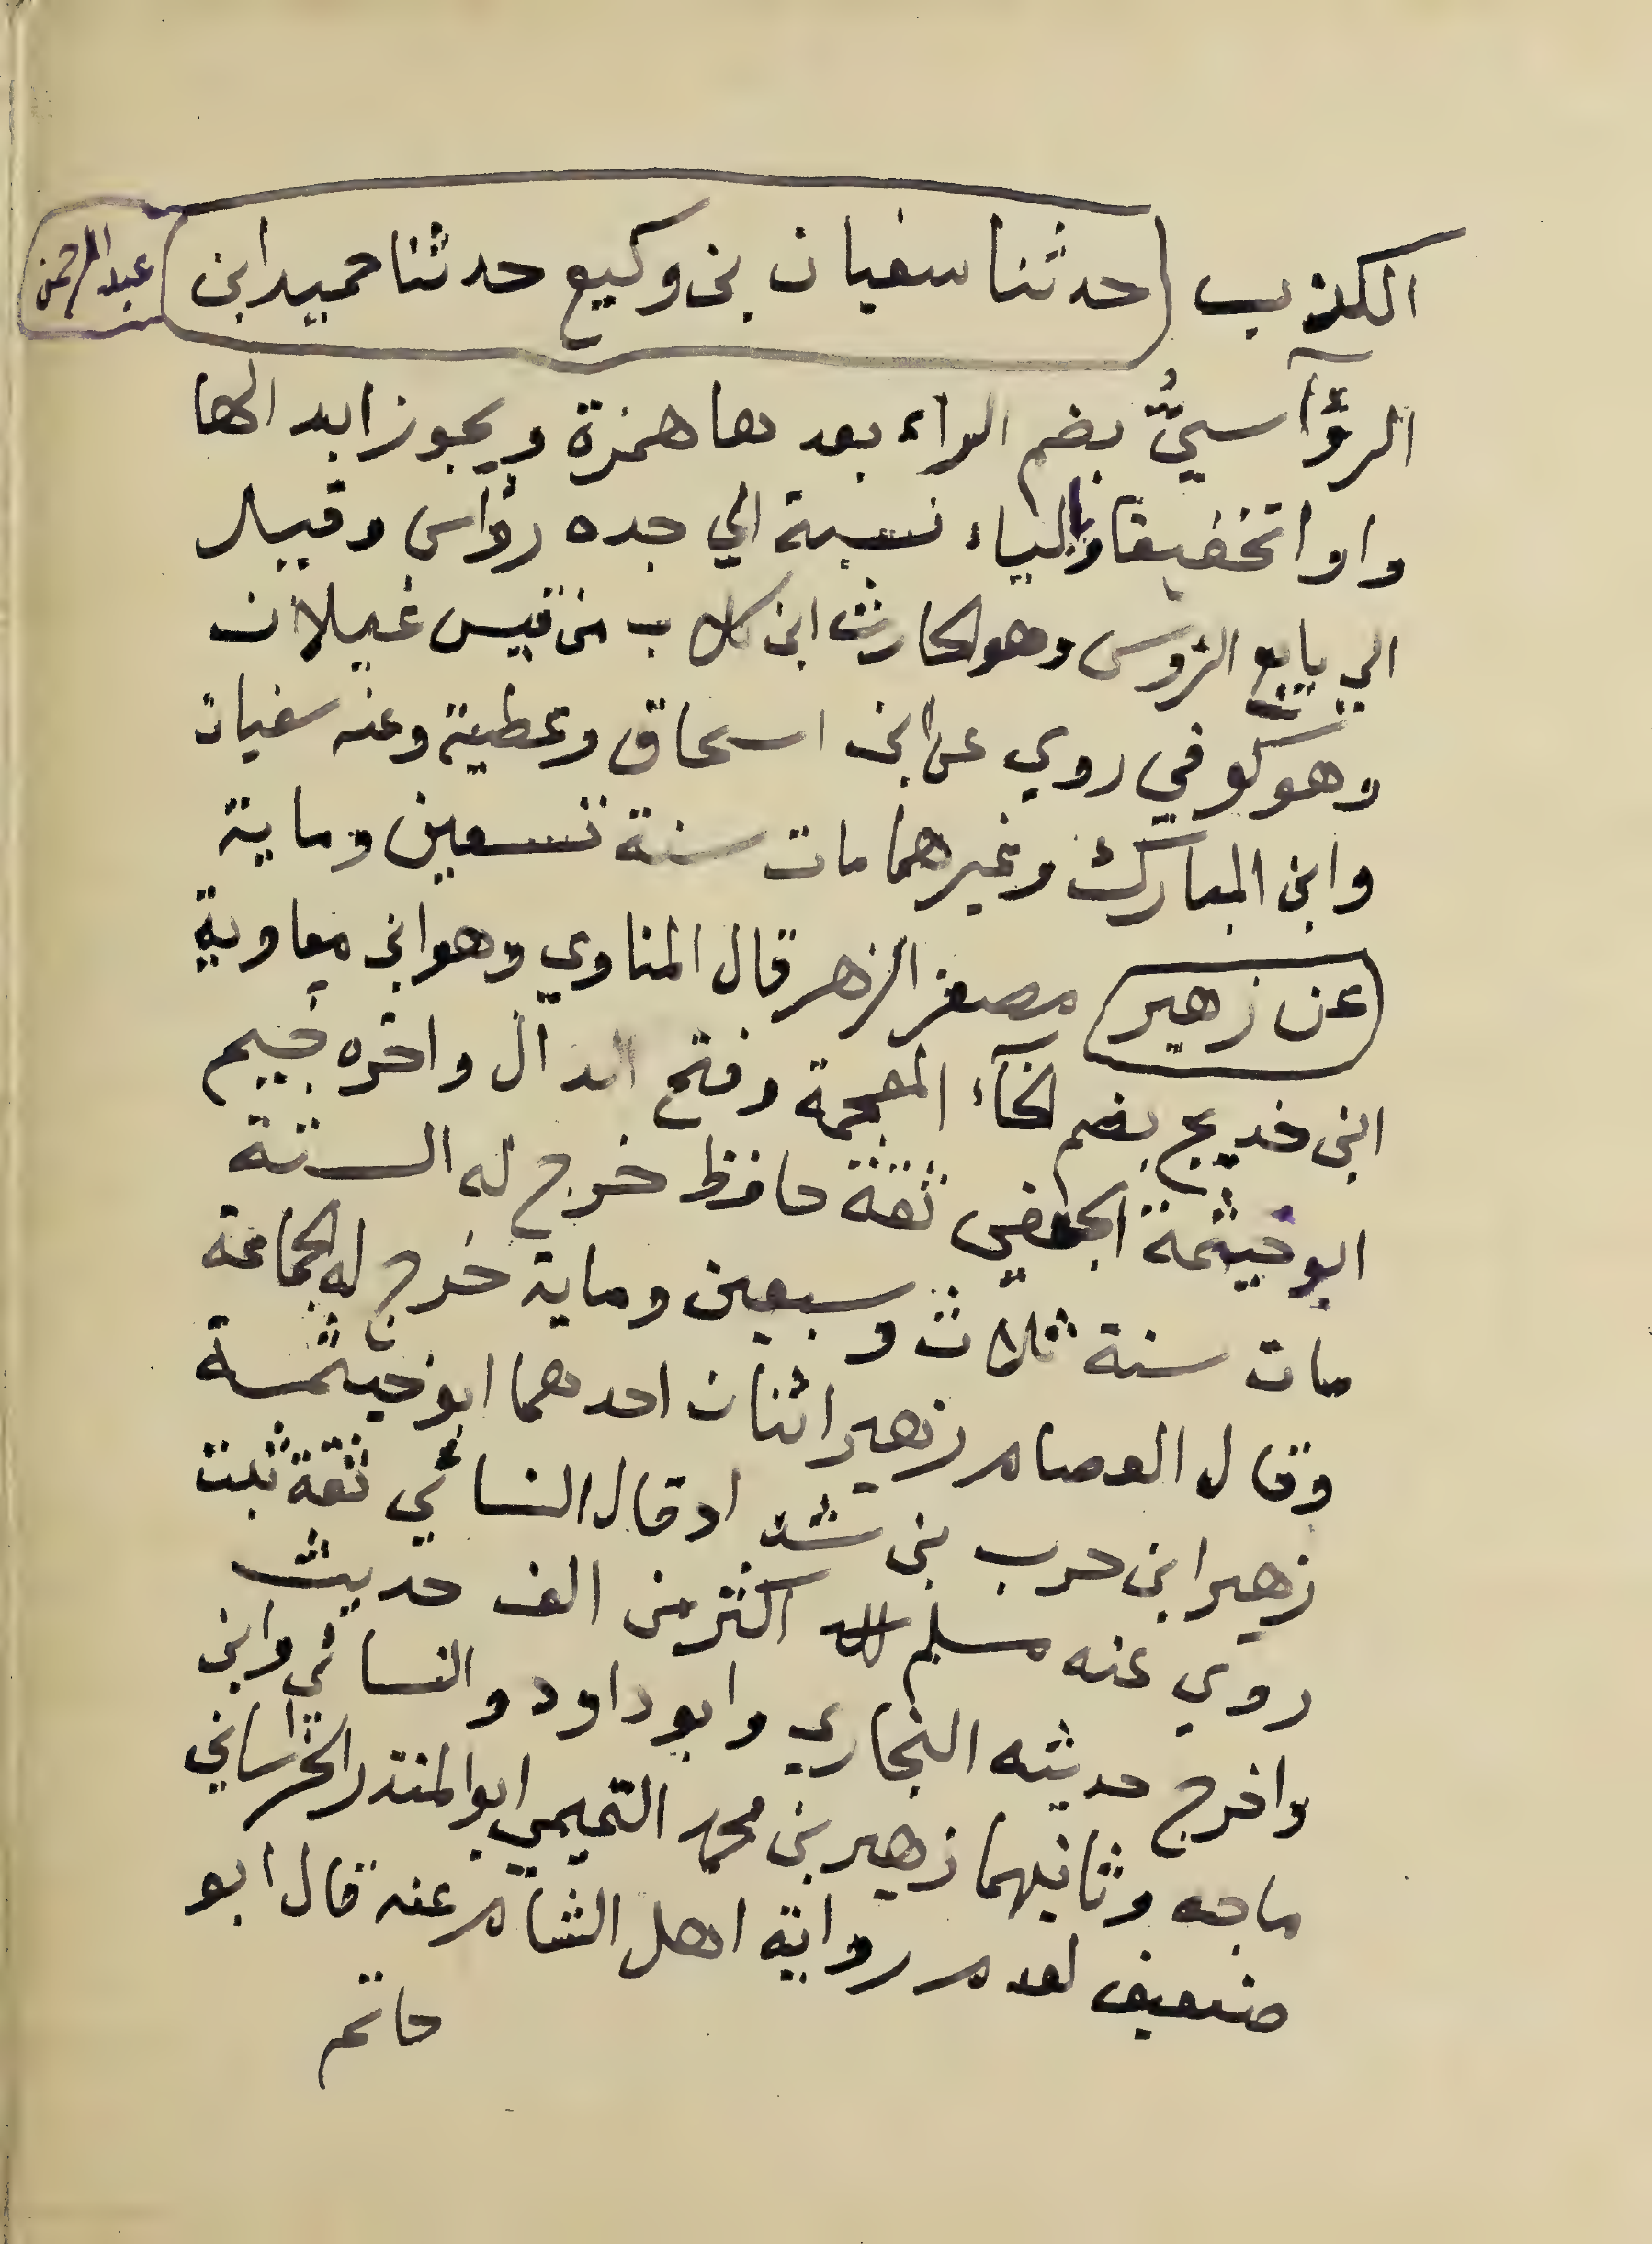 الكذب (حدثنا سفيان بن وكيع حدثنا حميد ابن عبد الرحمن)
الرؤآسيُّ بضم الراء بعدها همزة ويجوز ابدالها
واوا تخفيفا وبالياء نسبة الي جده رؤاس وقيل
الي بايع الرؤس وهو الحارث ابن كلاب من قيس غيلان
وهو كوفي روي عن ابن اسحاق وعطية وعنه سفيان
وابن المبارك وغيرهما مات سنة تسعين وماية
(عن زهير) مصغر الزهر قال المناوي وهو ابن معاوية
ابن خديج بضم الخآء المعجمة وفتح الدال واخره جيم
ابو خيثمة الجعفي ثقة حافظ خرج له الستة
مات سنة ثلاث وسبعين وماية خرج له الجماعة
وقال العصام زهير اثنان احدهما ابو خيثمة
زهير ابن حرب بن شداد قال النسائي ثقة ثبت
روي عنه مسلم اكثر من الف حديث
واخرج حديثه البخاري وابو داود والنسائي وابن
ماجه وثانيهما زهير بن محمد التميمي ابو المنذر الخراساني
ضعيف لعدم رواية اهل الشام عنه قال ابو
حاتم